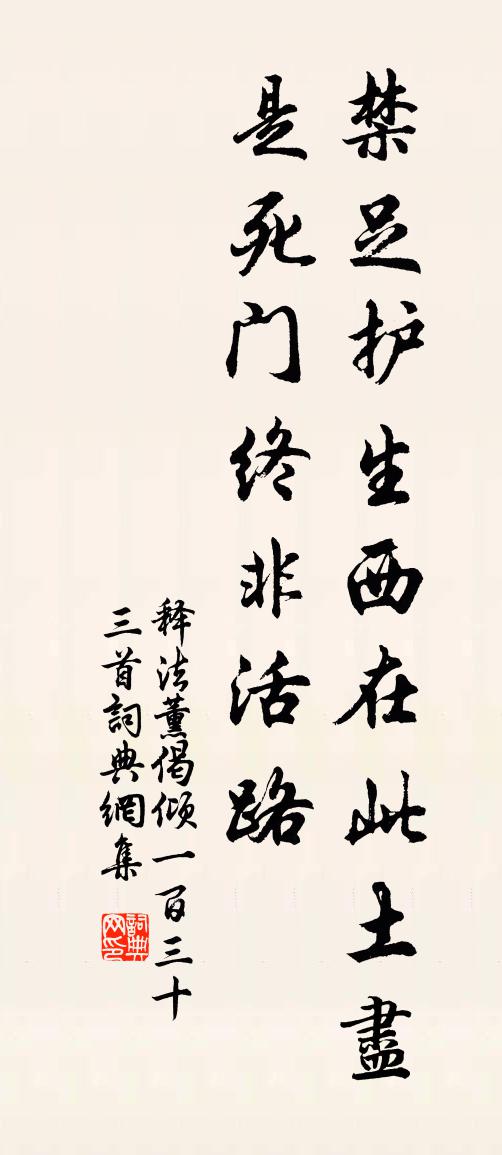 禁足护生西在此土盡
是死门终非活路
释法薰偈倾一百三十
三首詞典網集
詞典网印